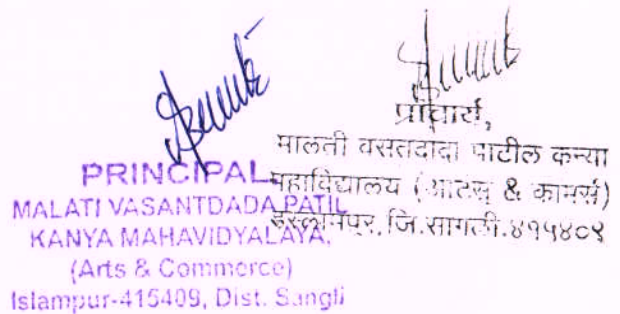 PRINCIPAL
MALATI VASANTDADA PATIL
KANYA MAHAVIDYALAYA,
(Arts & Commerce)
Islampur-415409, Dist. Sangli
प्राचार्य,
मालती वसंतदादा पाटील कन्या
महाविद्यालय (आर्टस् & कामर्स)
इस्लामपूर, जि.सांगली.४१५४०९